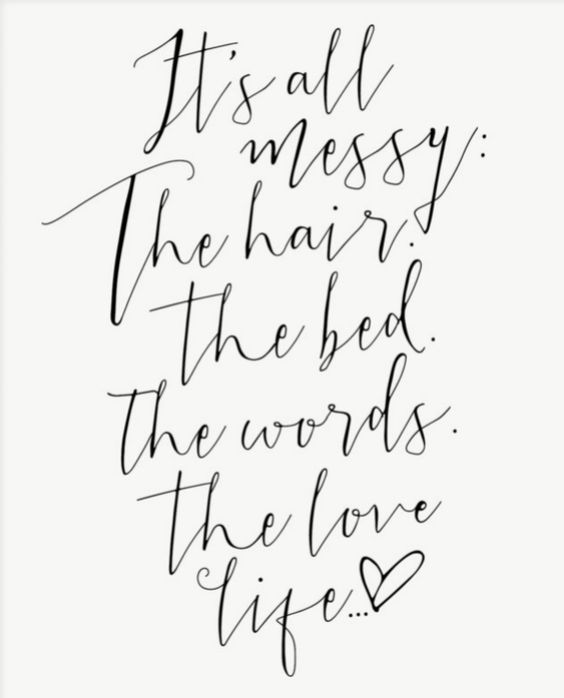 It's all
messy:
The hair.
the bed.
the words.
the love
life...